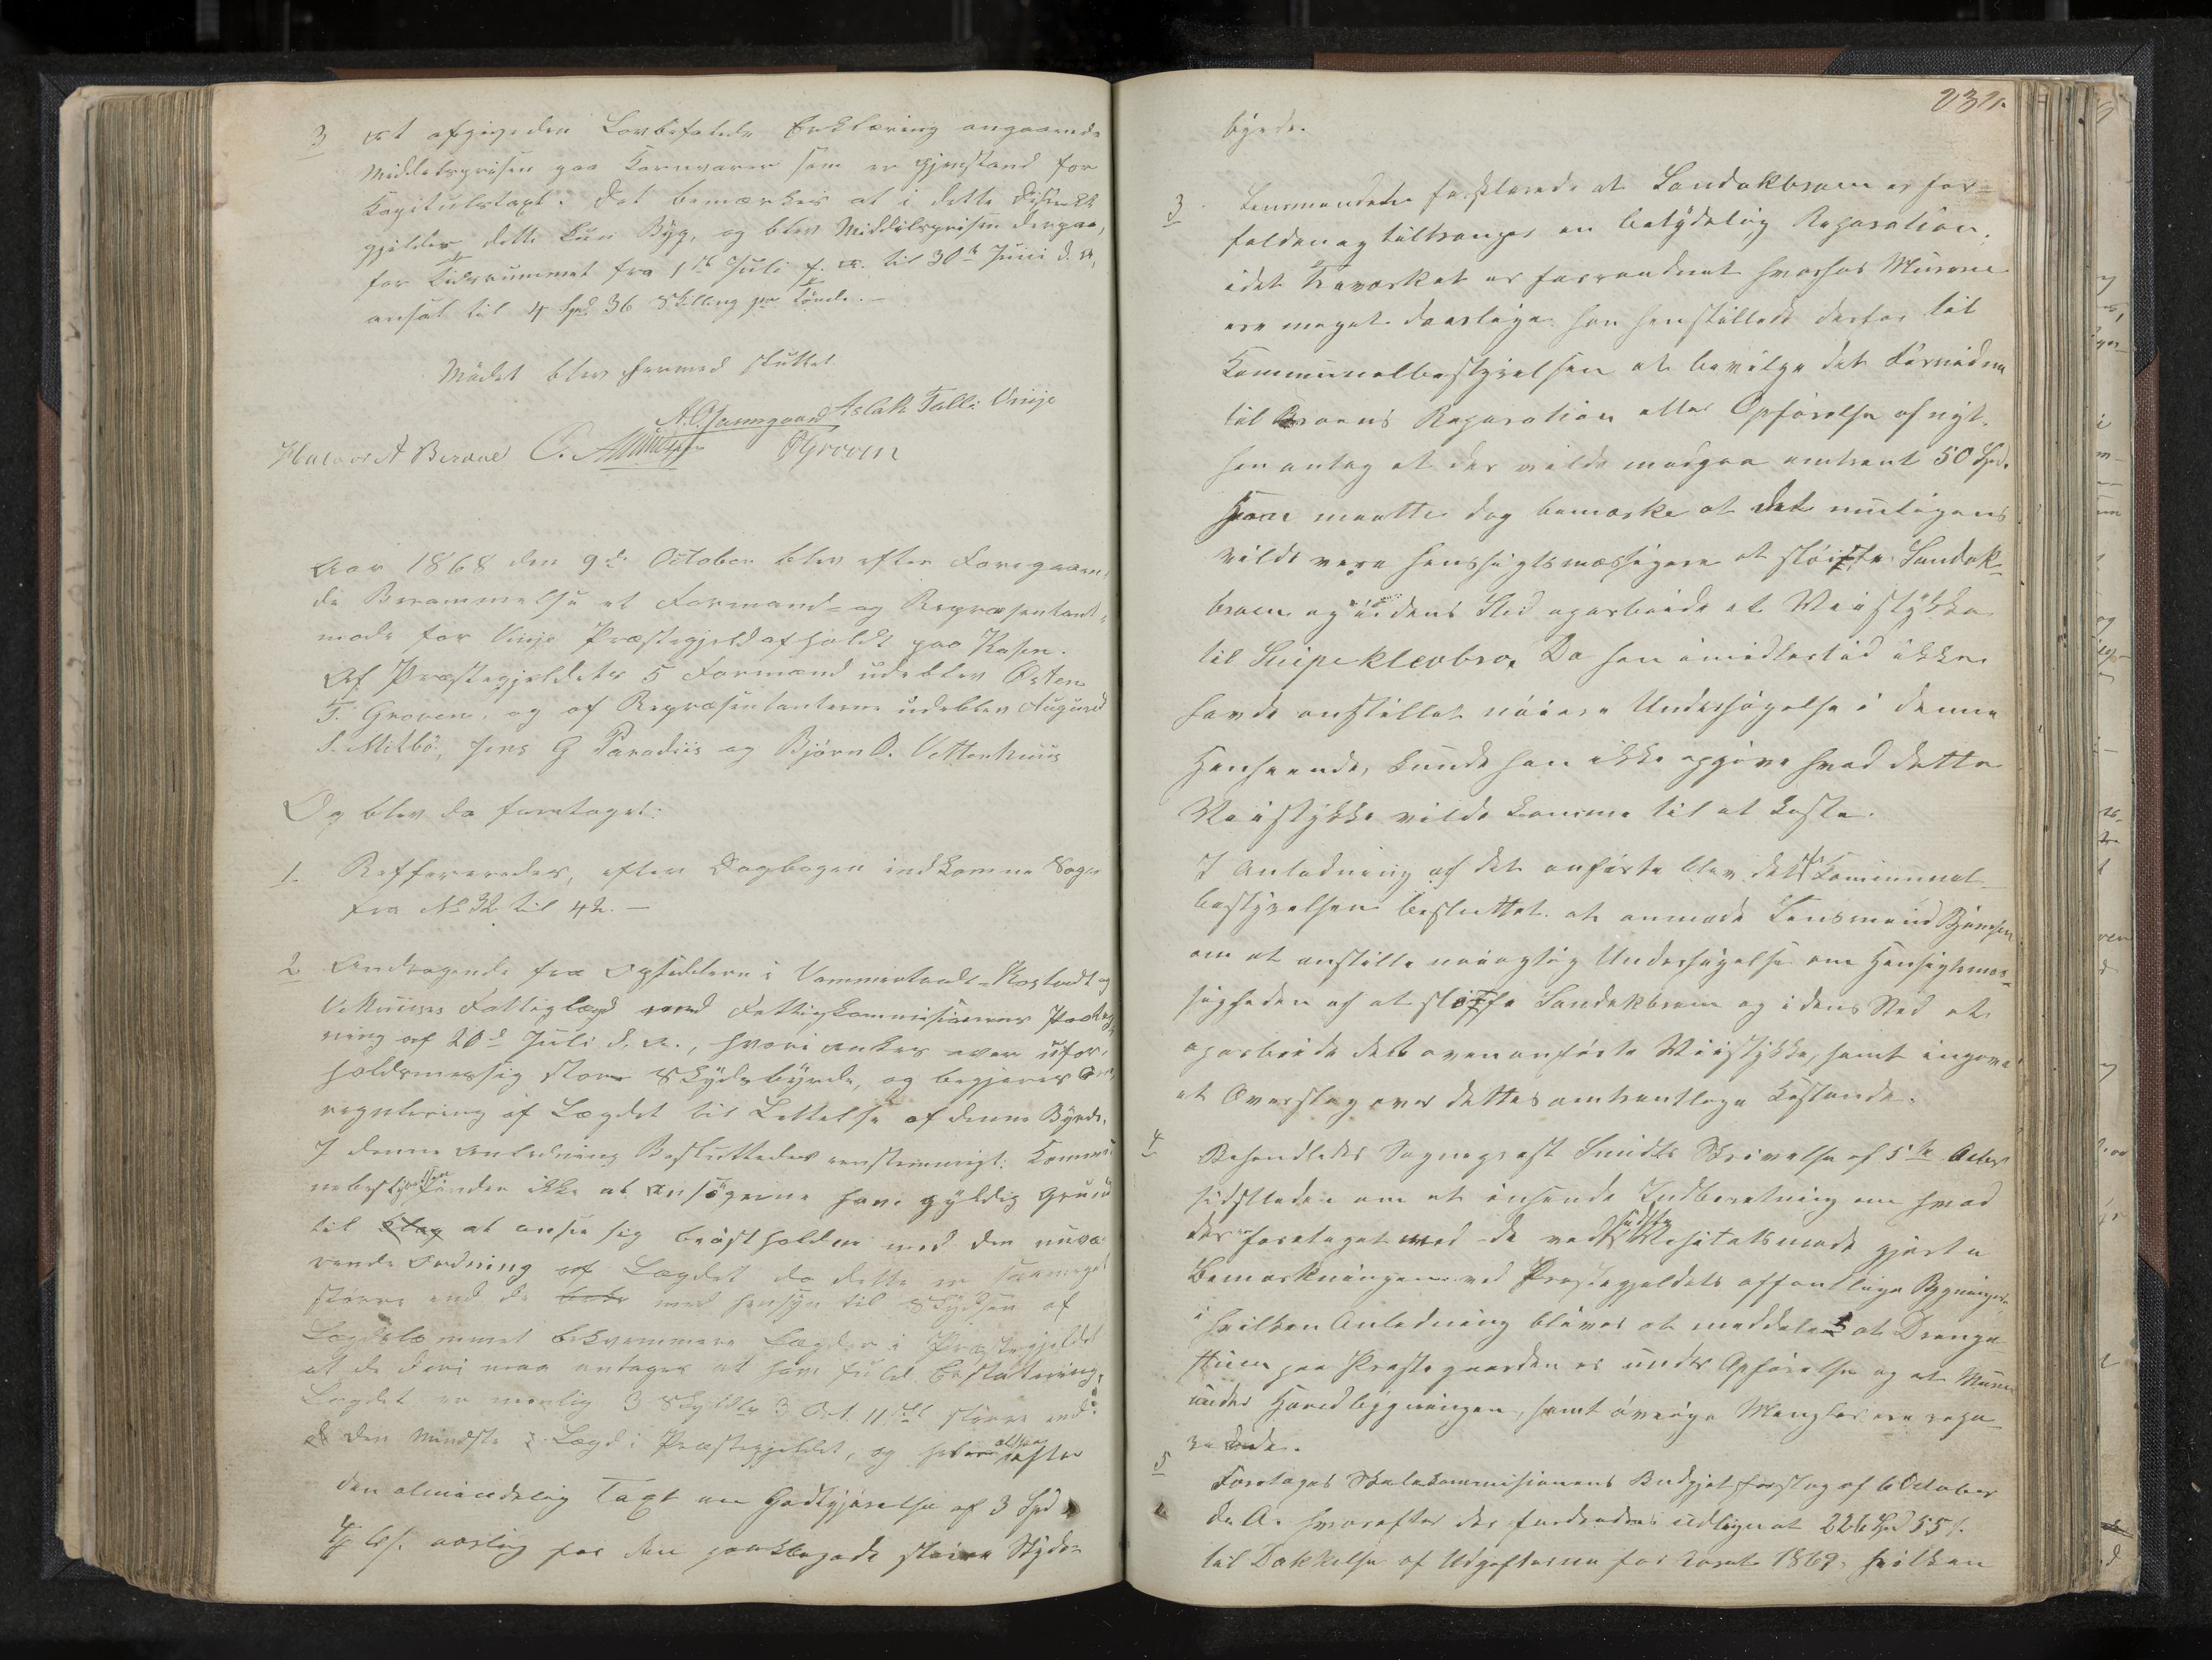 3 at afgive den Lovbefalede Erklæring angaaende
Middelsprisen paa Kornvarer som er Gjenstand for
Kapitulstaxt. Det bemærkes at i dette Distrikt
gjelder dette kun Byg, og blev Middelsprisen derpaa,
for Tidsrummet fra 1ste Juli f. A. til 30te Juni d. A.
ansat til 4 Spd 36 Skilling pr Tønde.–
Mødet blev hermed sluttet
Aslak Falli Vinje
Halvor A Berdal O. OGroven
Aar 1868 den 9de October blev efter Foregaaen,
de Berammelse et Formand- og Repræsentant-
møde for Vinje Præstegjeld afholdt paa Kasen.
Af Præstegjeldets 5 Formænd udeblev Østen
T. Groven, og af Repræsentanterne udeblev Augund
S. Mitbø, Jens G Paradiis og Bjørn O. Vetterhuus
Og blev da foretaget:
1. Refffereredes, efter Dagbogen indkomne Sager
fra No 32 til 42.–
2 Andragende fra Opsidderne i
Fattiglægd med Fattigkommisionens Paateg,
ning af 20de Juli d. A., hvori ankes over ufor,
holdsmessig stor Skydsbyrde, og begjeres Om,
regulering af Lægdet til Lettelse af denne Byrde.
I denne Anledning Besluttedes eenstemmigt: Kommu
nebestyrelsen finder ikke at Ansøgerne have gyldig Grund
til Klag at ansee sig brøstholdne med den nuvæ
rende Ordning af Lægdet da dette er saameget
større end de med Hensyn til Skydsen af
Lægdslemmet bekvemmere Lægder i Præstegjeldet
at de deri maa antages at have fuld Erstatning.
Lægdet er nemlig 3 Skylddlr 3 Ort 11 større end
den Mindste Lægd i Præstegjeldet, og haver altsaa efter
den almindelig Taxt en Godtgjørelse af 3 Spd
aarlig for den paaklagede større Skyds-
231.
byrde.
3 Lensmanden forklarede at Landakbroen er for-
falden og tiltrænger en betydelig Reparation.
idet Træverket er forraadnet hvorhos Murene
ere meget daarlige. Han henstillede derfor til
Kommunalbestyrelsen at bevilge det Fornødne
til Broens Reparation eller Opførelse af nyt.
Han antog at der vilde medgaa omtrent 50 Spd.
Han maatte dog bemærke at det muligens
vilde være hensigtsmæssigere at sløiffe Landak-
broen og i dens Sted oparbeide et Veistykke
til Snipeklevbro. Da han imidlertid ikke
havde anstillet nøiere Undersøgelse i denne
Henseende, kunde han ikke opgive hvad dette
Veistykke vilde komme til at koste.
I Anledning af det anførte blev det af Kommunal-
bestyrelsen besluttet at anmode Lensmand
om at anstille nøiagtig Undersøgelse om Hensigtsmæs-
sigheden af at sløiffe Landakbroen og i dens Sted at
oparbeide det ovenanførte Veistykke, samt ingive
et Overslag over dettes omtrentlige Kostende.
4 Behandledes Sogneprest Smidts Skrivelse af 5te Octbr
sidstleden om at indsende Indberetning om hvad
der er foretaget med de ved sidste Visitatsmøde gjorte
Bemærkninger ved Præstegjeldets offentlige Bygninger.
i hvilken Anledning bliver at meddeles at Drenge-
stuen paa Prestegaarden er under Opførelse og at Muren
under Hovedbygningen, samt øvrige Mangler ere repa-
rerede.
5 Foretoges Skolekommisionens Budgjetforslag af 6 October
d. A. hvorefter der fordredes udlignet 226 Spd 55 s.
til Dækkelse af Udgifterne for Aaret 1869, hvilken